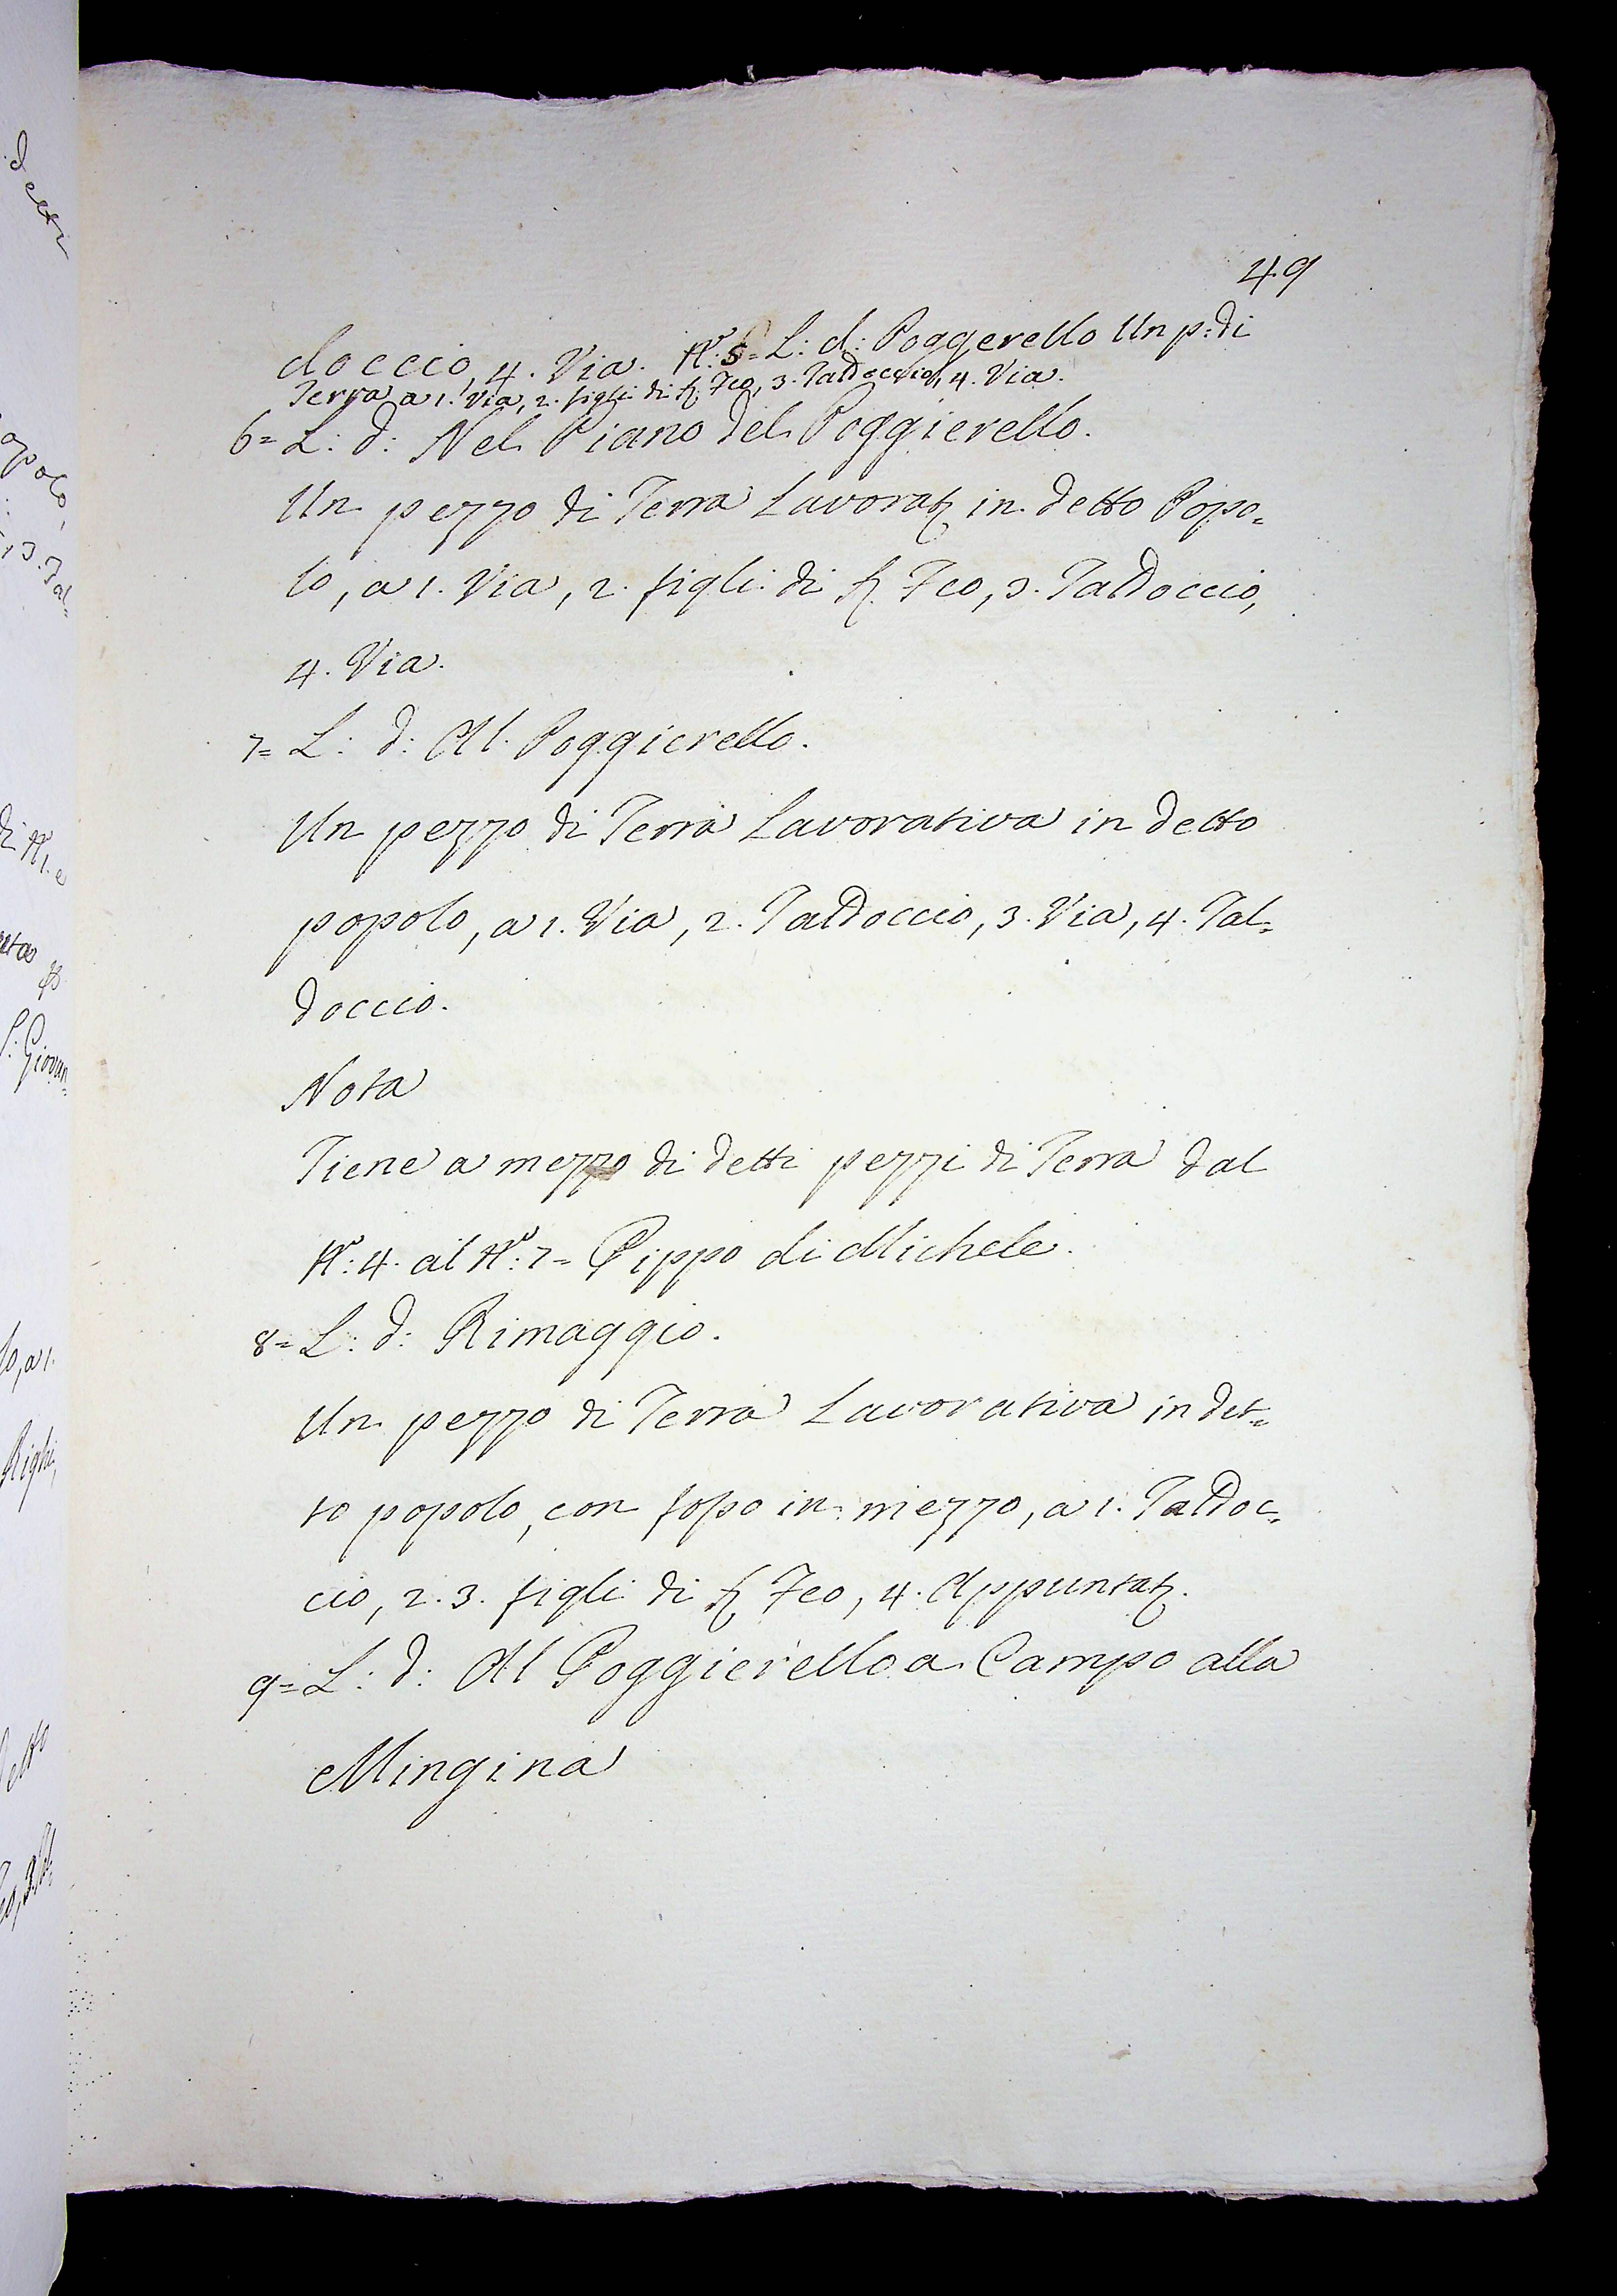 49
doccio, 4. Via. N.º: 5= L: d: Poggerello Un p: di
Terra a 1. Via, 2. figli di S. Feo, 3. Taldoccio, 4. Via.
6= L: d: Nel Piano del Poggierello.
Un pezzo di Terra Lavorat. in detto Popo=
lo, a 1. Via, 2. figli di S. Feo, 3. Taldoccio,
4. Via.
7= L: d: Al Poggierello.
Un pezzo di Terra Lavorativa in detto
popolo, a 1. Via, 2. Taldoccio, 3. Via, 4. Tal=
doccio.
Nota
Tiene a mezzo di detti pezzi di Terra dal
N.º: 4. al N.º: 7= Pippo di Michele.
8= L: d: Rimaggio.
Un pezzo di Terra Lavorativa in det=
to popolo, con fosso in mezzo, a 1. Taldoc=
cio, 2. 3. figli di S. Feo, 4. Appuntat.
9= L: d: Al Poggierello a Campo alla
Mingina